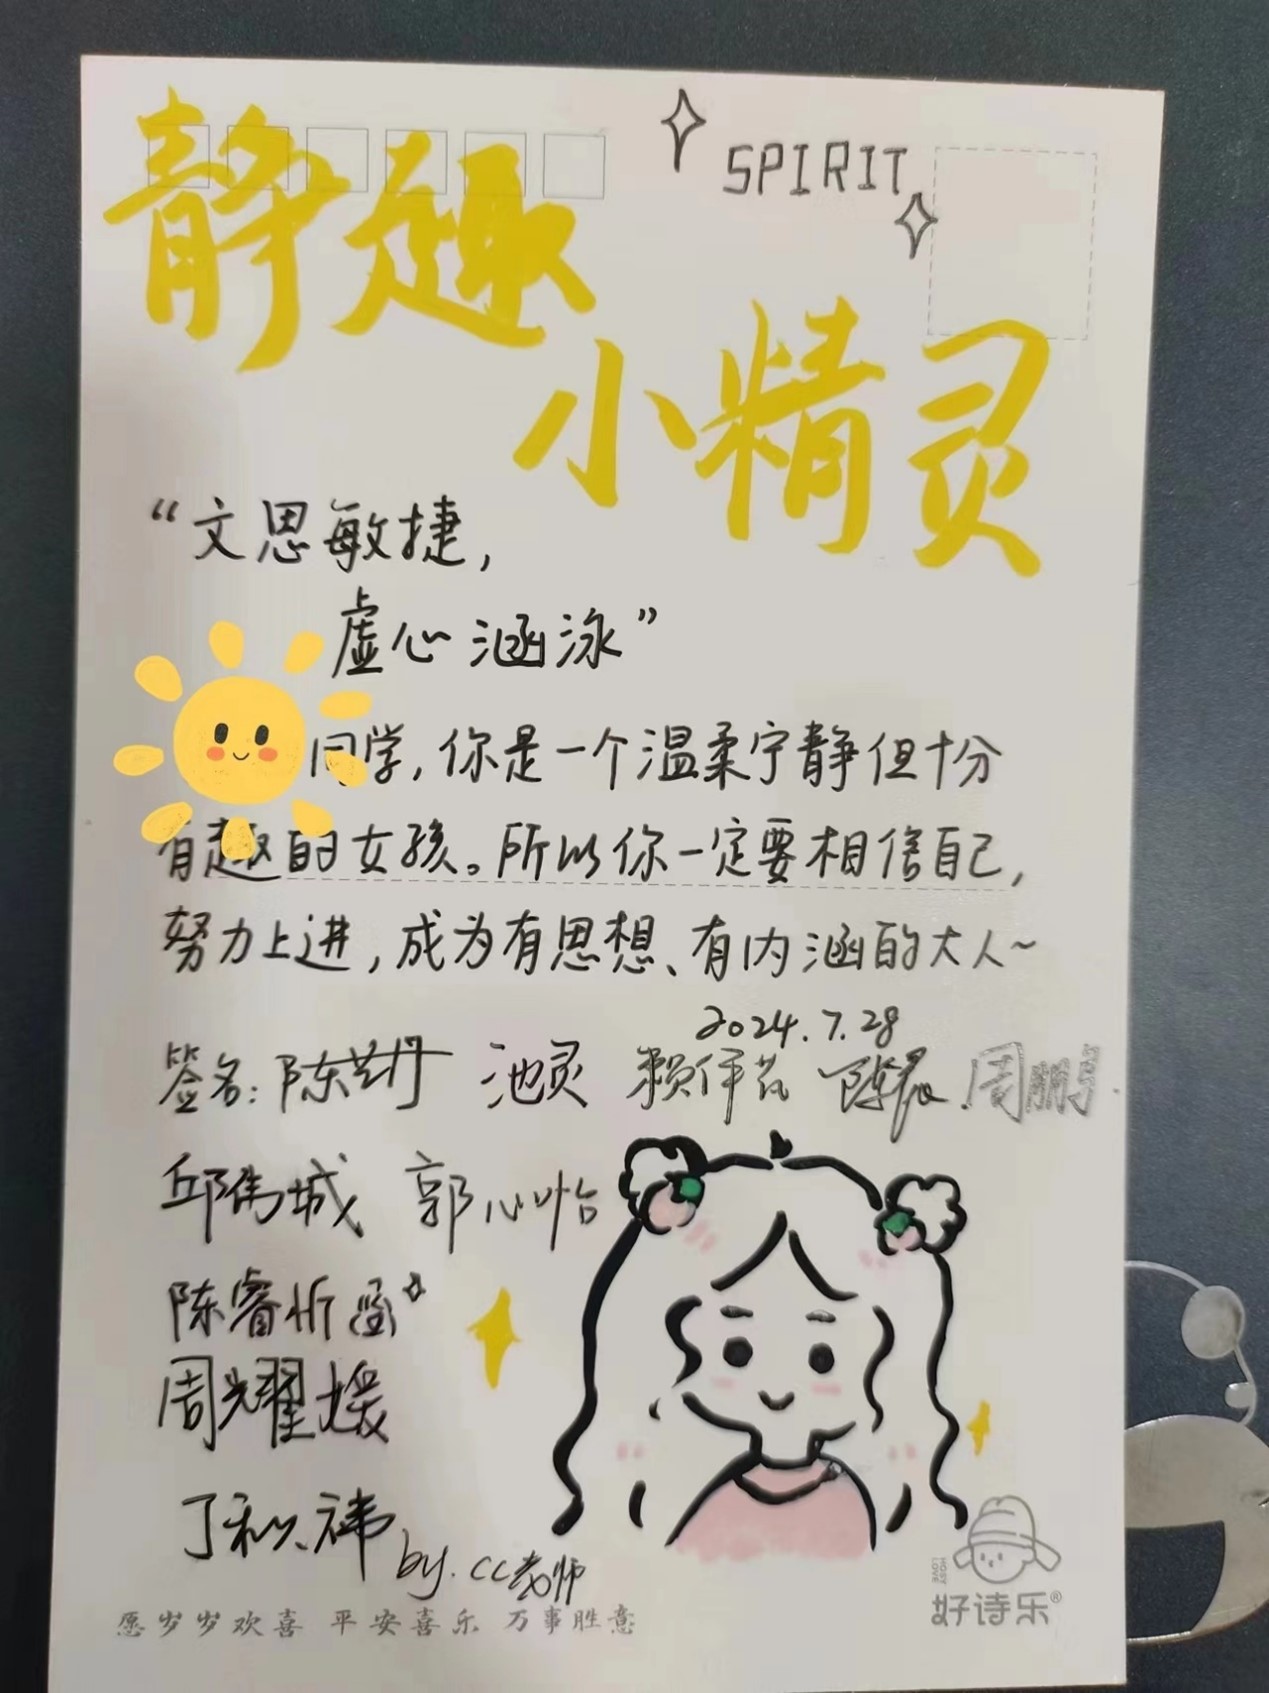 静趣
SPIRIT
小精灵
“文思敏捷，
虚心涵泳”
同学，你是一个温柔宁静但十分
有趣的女孩。所以你一定要相信自己，
努力上进，成为有思想、有内涵的大人~
2024.7.28
签名：陈艺丹 池灵 赖伊芸 陈晨 周鹏宇
邱伟城 郭心怡
陈睿忻
周耀媛
丁利祎
by. CC老师
愿岁岁欢喜 平安喜乐 万事胜意
HOSY LOVE
好诗乐®